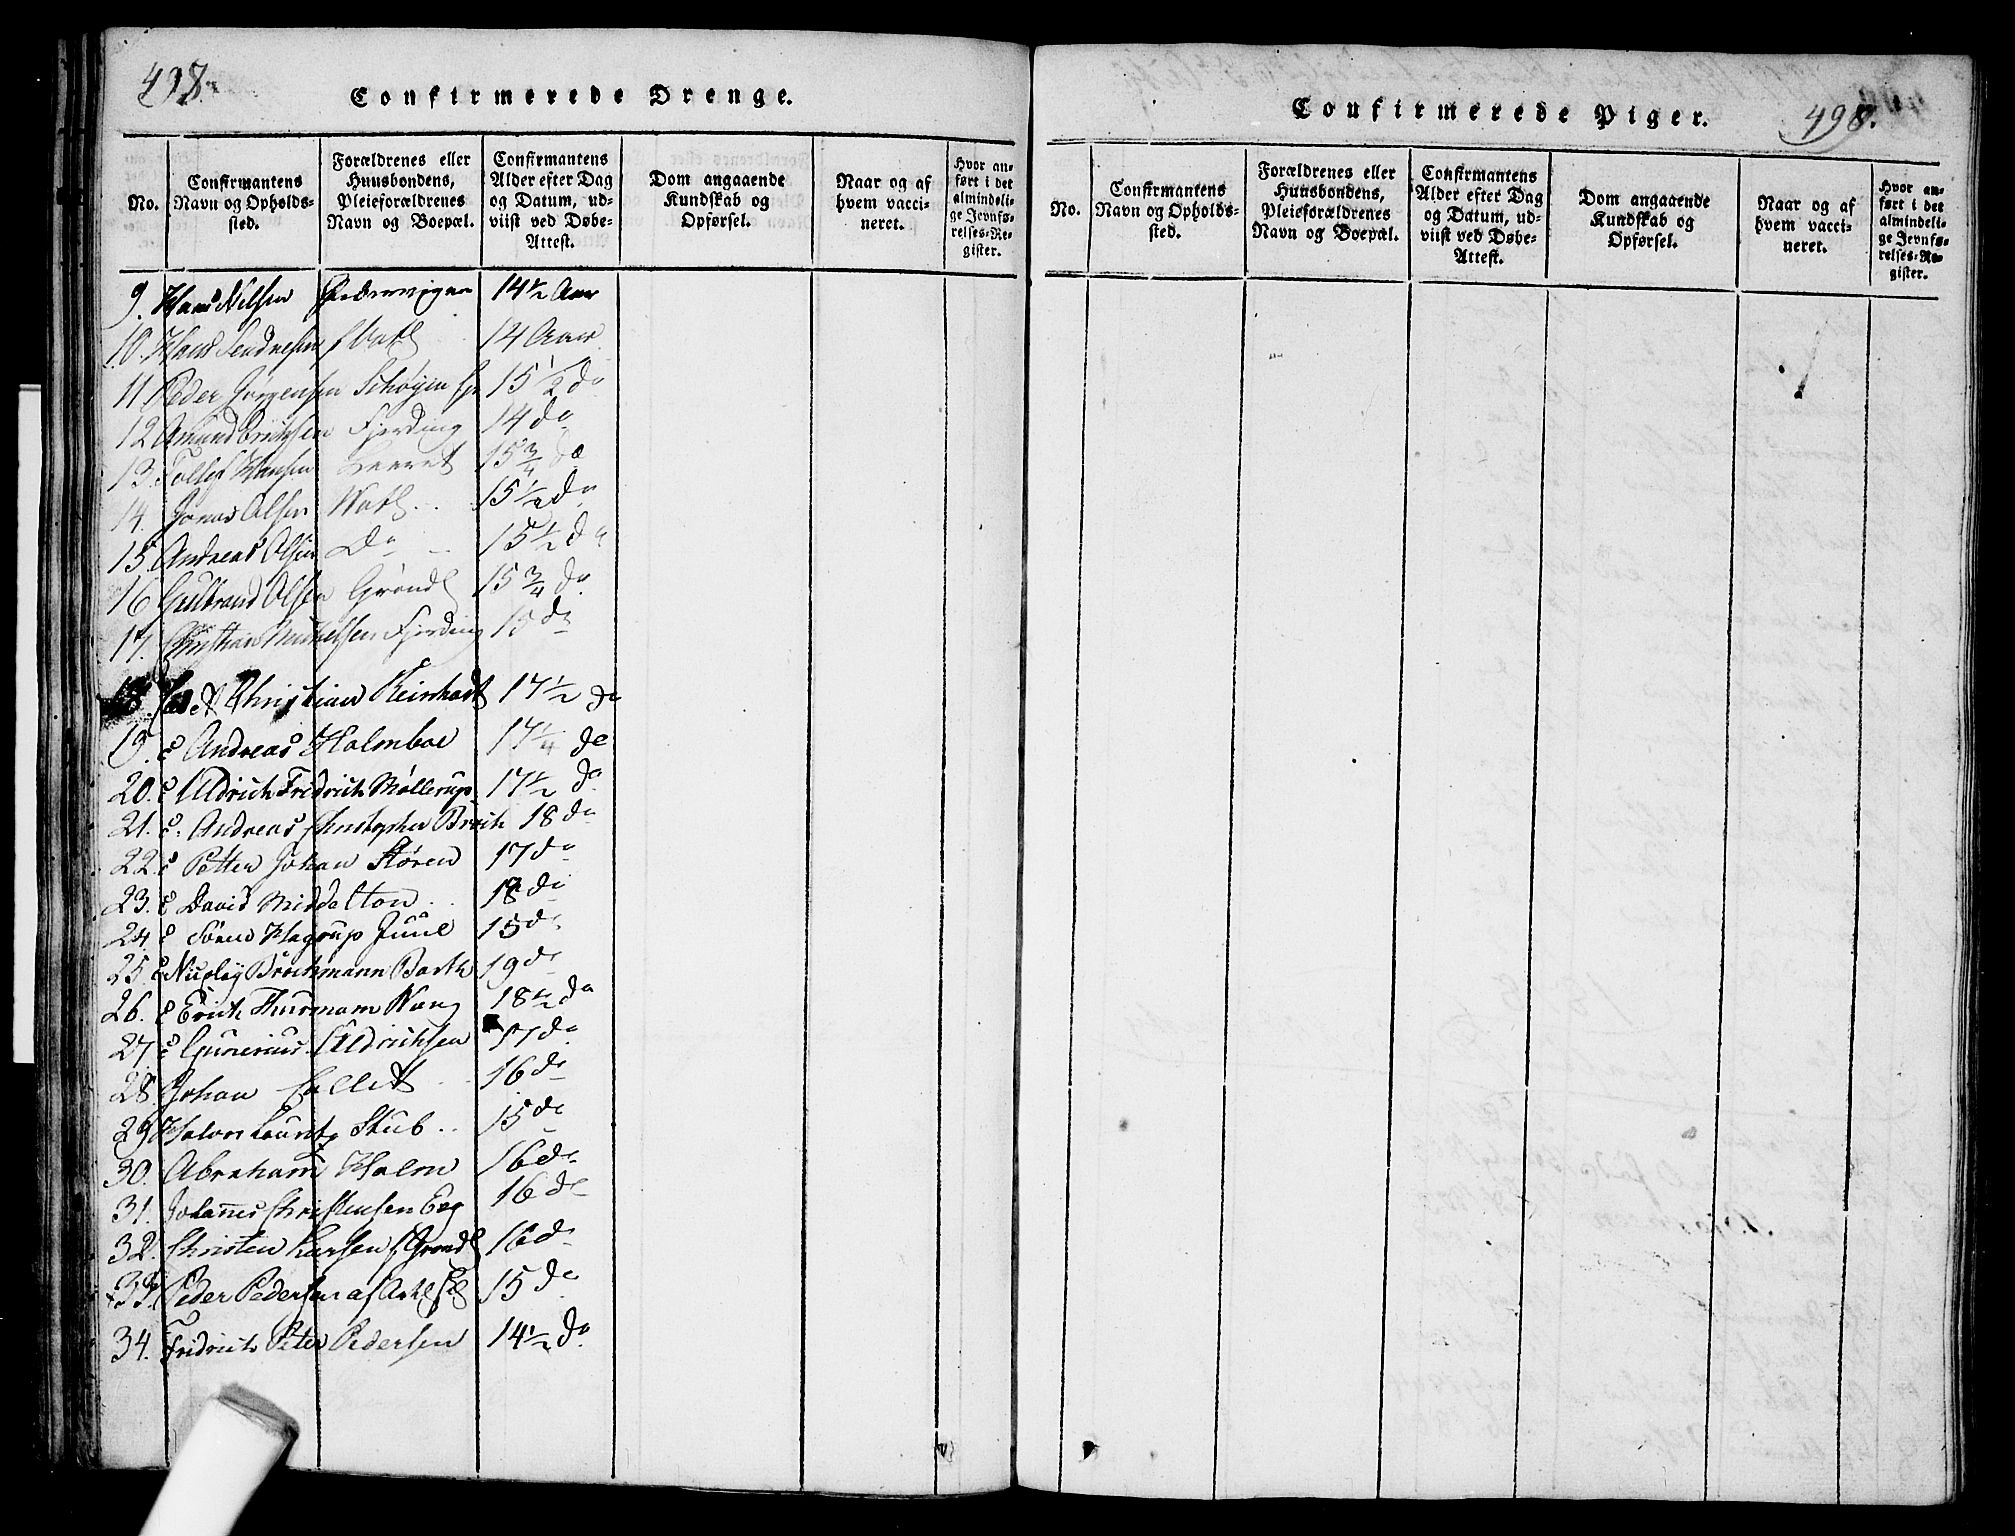 498.
Confirmerede Drenge.
No.
Confirmantens Navn og Opholds-sted.
Forældrenes eller Huusbondens, Pleieforældrenes Navn og Boepæl.
Confirmantens Alder efter Dag og Datum, ud-viist ved Døbe-Attest.
Dom angaaende Kundskab og Opførsel.
Naar og af hvem vacci-neret.
Hvor an-ført i det almindeli-ge Jevnfø-relses-Re-gister.
9. Hans Nilsen 14 1/2 Aar
10. Hans 14 Aar
11 Peder Jørgensen Schøyen 15 1/2 do
12 Amund Erichsen Fjerding 14 do
13. Tollef Hansen 15 3/4 do
14. Jonas Olsen Vatl 15 1/2 do
15. Andreas Olsen Do 15 1/2 do
16 Gulbrand Olsen Grøndl 15 3/4 do
17. Christian Michelsen Fjerding 15 do
18. Christian Reinhardt 17 1/2 do
19. C Andreas Holmboe 17 1/4 do
20. C Aldrich Fridrich Møllerup 17 1/2 do
21. C. Andreas Christopher 18 do
22. C Petter Johan Støren 17 do
23. C David Middelton 18 do
24. C Søren Hagrup Juul 15 do
25. C Nicolay Brochmann Barth 19 do
26. C Erich Thurmann Wang 18 1/2 do
27. C Gunerius Aldrichsen 17 do
28. Johan Collet 16 do
29 Halvor Stub 15 do
30. Abraham Holm 16 do
31. Johannes Christensen Eeg 16 do
32. Christen Larsen Grøndl 16 do
33. Peder Pedersen af 15 do
34. Fridrich Peter Pedersen 14 1/2 do
Confirmerede Piger.
498.
No.
Confirmantens Navn og Opholds-sted.
Forældrenes eller Huusbondens, Pleieforældrenes Navn og Boepæl.
Confirmantens Alder efter Dag og Datum, ud-viist ved Døbe-Attest.
Dom angaaende Kundskab og Opførsel.
Naar og af hvem vacci-neret.
Hvor an-ført i det almindeli-ge Jevnfø-relses-Re-gister.